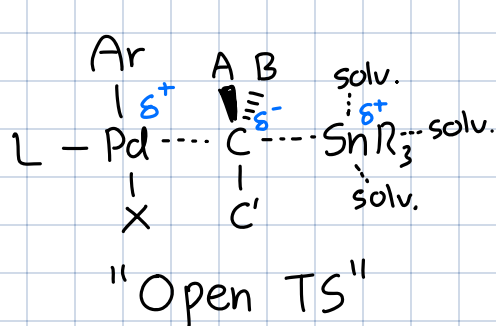 Ar A B solv.
δ+ δ- δ+
L - Pd ····· C ····· SnR3 ··· solv.
X C' solv.
"Open TS"